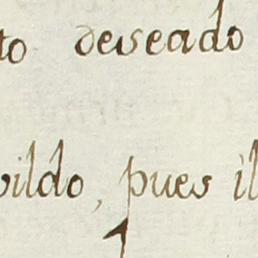 to deseado
vildo, pues il